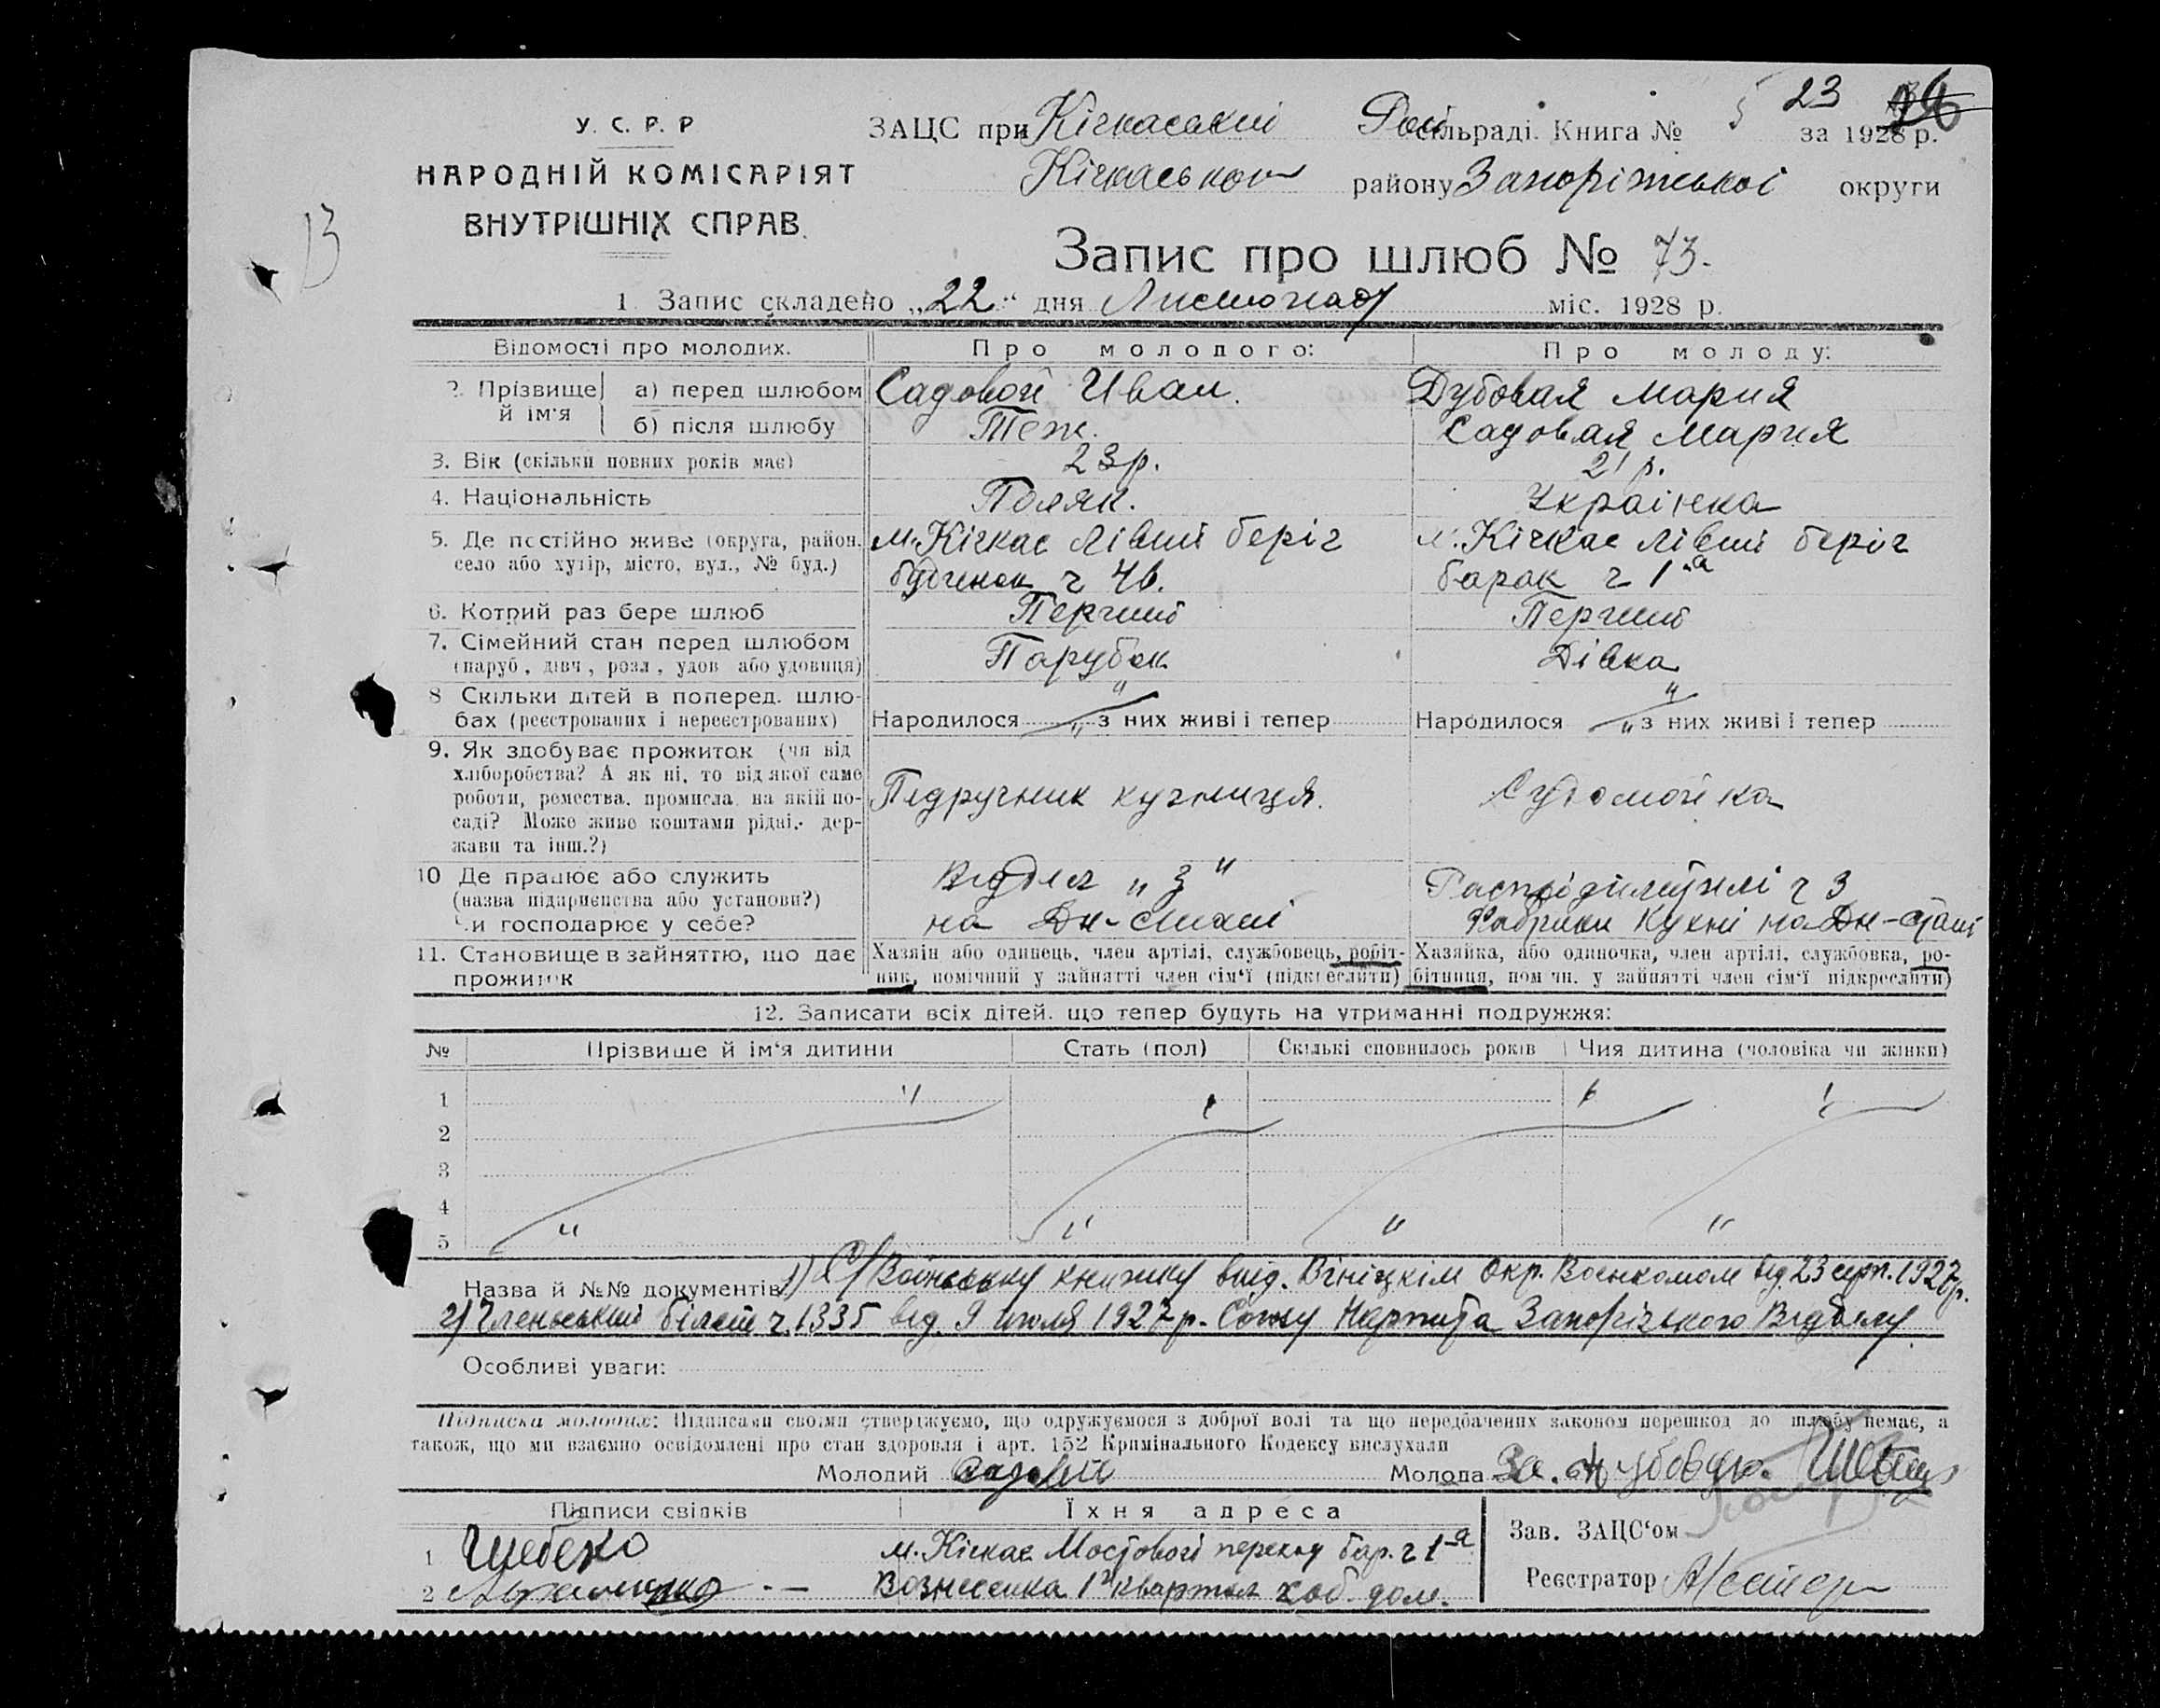 23
У. С. Р. Р
НАРОДНІЙ КОМІСАРІЯТ
ВНУТРІШНІХ СПРАВ.
13
ЗАЦС при Кічкаський сільраді. Книга № 5 за 1928 р.
Кічкаського району Запоріжської округи
Запис про шлюб № 73.
1 Запис складено „22" дня Листопаду міс. 1928 р.
Відомості про молодих. Про молодого: Про молоду:
2. Прізвище й ім'я а) перед шлюбом Садовой Иван. Дубовая Мария
б) після шлюбу Теж. Садовая Мария
3. Вік (скільки повних років має) 23 р. 21 р.
4. Національність Поляк. Українка
5. Де постійно живе (округа, район, м. Кічкас лівий беріг м. Кічкас лівий беріг
село або хутір, місто, вул., № буд.) будинок ч 4в. барак ч 1а
6. Котрий раз бере шлюб Перший Перший
7. Сімейний стан перед шлюбом
(паруб, дівч, розл, удов або удовиця) Парубок Дівка
8 Скільки дітей в поперед. шлю-
бах (реєстрованих і нереєстрованих) Народилося " з них живі і тепер Народилося " з них живі і тепер
9. Як здобуває прожиток (чи від
хліборобства? А як ні, то від якої саме
роботи, ремества, промисла, на якій по- Підручник кузниця. Судомойка
саді? Може живе коштами рідні, дер-
жави та інш.?)
10 Де працює або служить Відділ „3"
(назва підприємства або установи?) ч 3
Чи господарює у себе? на Дн-стані Фабрики Кухні на Дн-стані
11. Становище в зайняттю, що дає Хазяїн або одинець, член артілі, службовець, робіт- Хазяйка, або одиночка, член артілі, службовка, ро-
прожиток ник, помічний у зайнятті член сім'ї (підкреслити) бітниця, пом чн. у зайнятті член сім'ї підкреслити)
12. Записати всіх дітей, що тепер будуть на утриманні подружжя:
№ Прізвище й ім'я дитини Стать (пол) Скількі сповнилось років Чия дитина (чоловіка чи жінки)
1
2
3
4
5
Назва й №№ документів 1) Воїнську книжку вид. Вініцкім Окр. Воєнкомом від 23 серп. 1927 р.
2) Членьский білет ч. 1335 від 9 июля 1927 р. Союзу Нарпита Запорізького Відділу.
Особливі уваги:
Підписка молодих: Підписами своїми стверджуємо, що одружуємося з доброї волі та що передбачених законом перешкод до шлюбу немає, а
також, що ми взаємно освідомлені про стан здоровля і арт. 152 Кримінального Кодексу вислухали
Молодий Садовий Молода За. Дубовую.
Підписи свідків Їхня адреса
Зав. ЗАЦС'ом
1 Шебеко м. Кічкас Мостовогі переход бар. ч 1а
Реєстратор
2 Вознесенка 1й квартал дом.